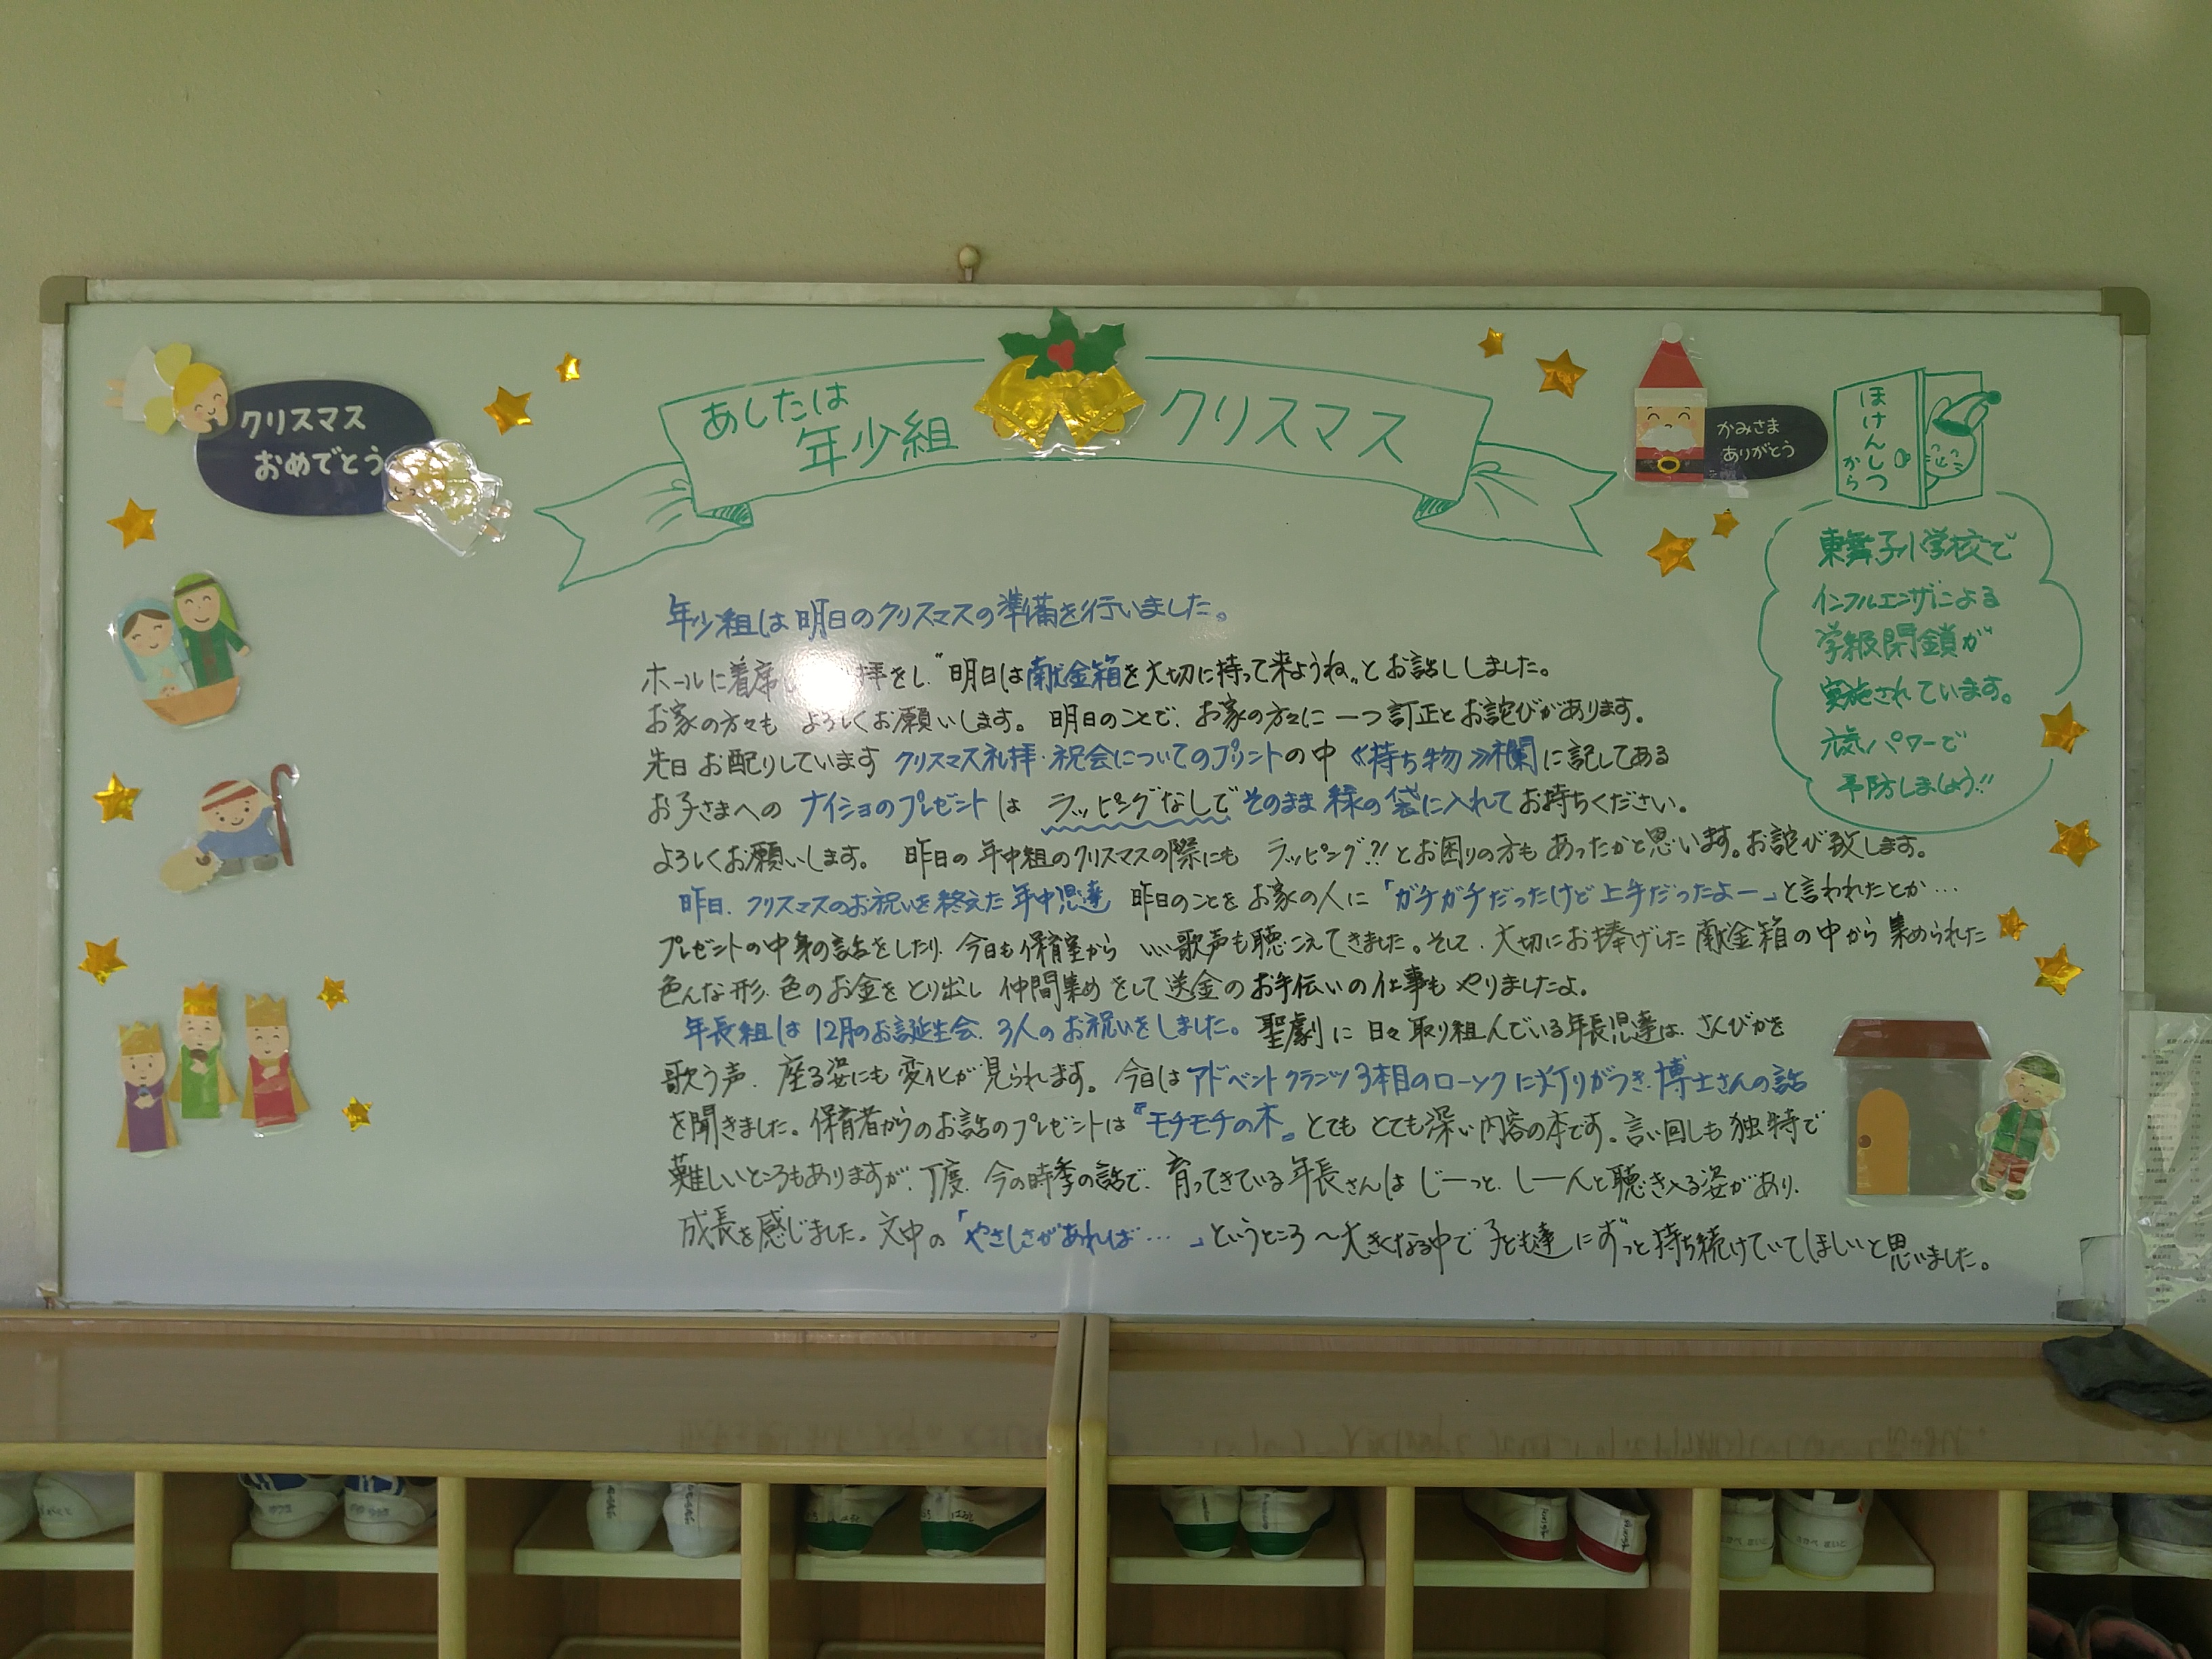 クリスマス
おめでとう
あしたは
年少組
クリスマス
かみさま
ありがとう
ほけんしつ
から
東舞子小学校で
インフルエンザによる
学級閉鎖が
実施されています。
元気パワーで
予防しましょう!!
年少組は明日のクリスマスの準備を行いました。
ホールに着席し 拝をし、"明日は献金箱を大切に持って来ようね"とお話ししました。
お家の方々も よろしくお願いします。 明日のことで、お家の方々に一つ訂正とお詫びがあります。
先日お配りしています クリスマス礼拝・祝会についてのプリントの中 《持ち物》欄に記してある
お子さまへの ナイショのプレゼントは ラッピングなしで そのまま緑の袋に入れてお持ちください。
よろしくお願いします。 昨日の年中組のクリスマスの際にも ラッピング?!とお困りの方もあったかと思います。お詫び致します。
昨日、クリスマスのお祝いを終えた年中児達 昨日のことをお家の人に「ガチガチだったけど上手だったよー」と言われたとか…
プレゼントの中身の話をしたり、今日も保育室から いい歌声も聴こえてきました。そして、大切にお捧げした献金箱の中から集められた
色んな形、色のお金をとり出し 仲間集めをして送金のお手伝いの仕事もやりましたよ。
年長組は12月のお誕生会、3人のお祝いをしました。聖劇に日々取り組んでいる年長児達は、さんびかを
歌う声、座る姿にも変化が見られます。今日はアドベントクランツ3本目のローソクに灯りがつき、博士さんの話
を聞きました。保育者からのお話のプレゼントは『モチモチの木』とてもとても深い内容の本です。言い回しも独特で
難しいところもありますが、丁度、今の時季の話で、育ってきている年長さんはじーっと、しーんと聴き入る姿があり、
成長を感じました。文中の「やさしさがあれば…」というところ～大きくなる中で子ども達にずっと持ち続けていてほしいと思いました。